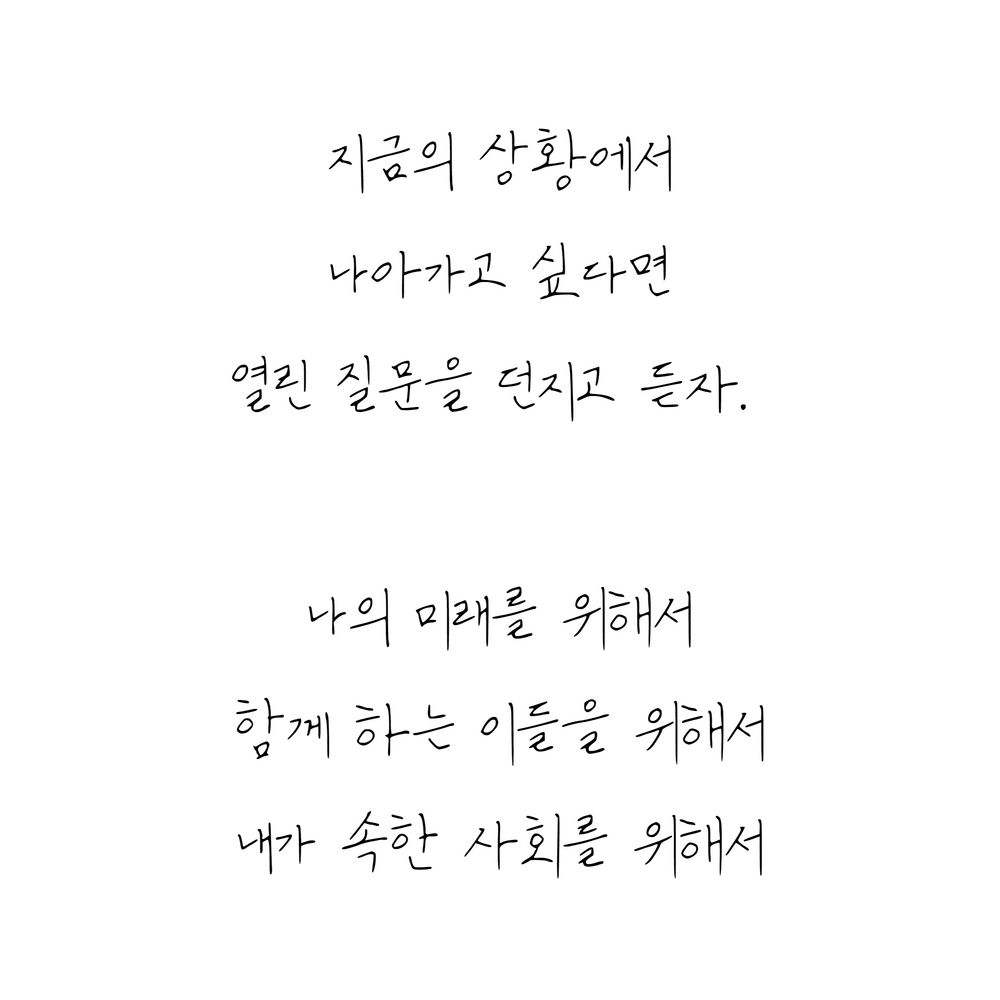 지금의 상황에서
나아가고 싶다면
열린 질문을 던지고 듣자.
나의 미래를 위해서
함께 하는 이들을 위해서
내가 속한 사회를 위해서